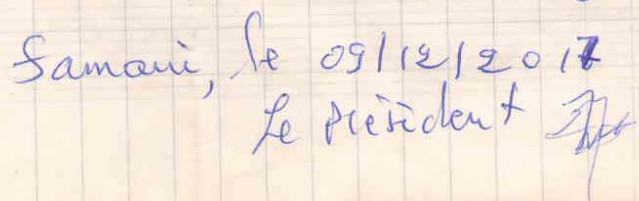 Samani, le 09/12/2017
Le président